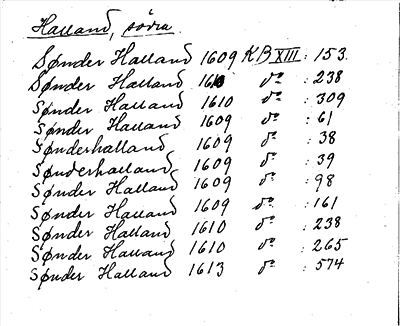 Halland, södra
Sønder Halland 1609 KB XIII : 153.
Sønder Halland 1610 dº : 238
Sønder Halland 1610 dº : 309
Sønder Halland 1609 dº : 61
Sønderhalland 1609 dº : 38
Sønderhalland 1609 dº : 39
Sønder Halland 1609 dº : 98
Sønder Halland 1609 dº : 161
Sønder Halland 1610 dº : 238
Sønder Halland 1610 dº : 265
Sønder Halland 1613 dº : 574